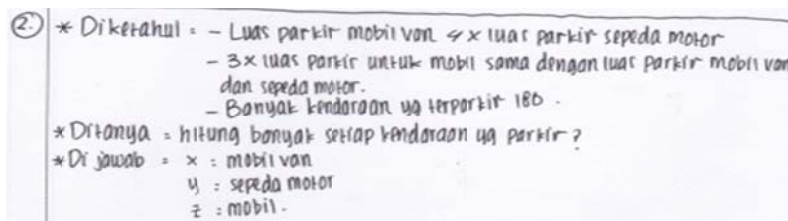 2. * Diketahui = - Luas parkir mobil van 4 x luas parkir sepeda motor
- 3x luas parkir untuk mobil sama dengan luas parkir mobil van
dan sepeda motor.
- Banyak kendaraan yg terparkir 180.
* Ditanya = hitung banyak setiap kendaraan yg parkir?
* Di jawab = x : mobil van
y : sepeda motor
z : mobil.